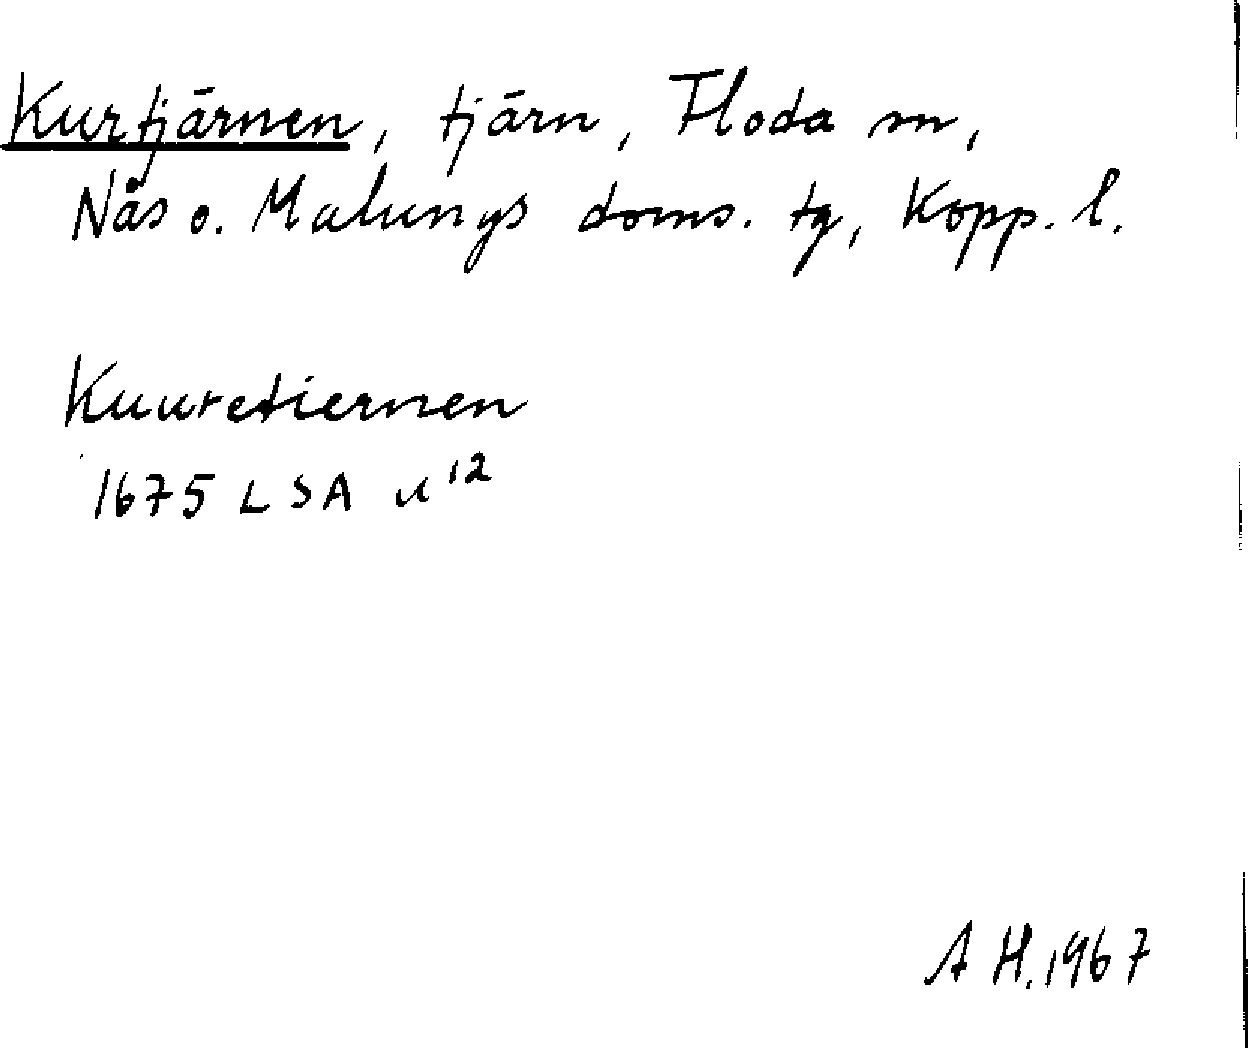 Kurtjärnen, tjärn, Floda sn,
Nås o. Malungs doms. tg, Kopp. l.
Kuuretiernen
1675 LSA u¹²
A H. 1967